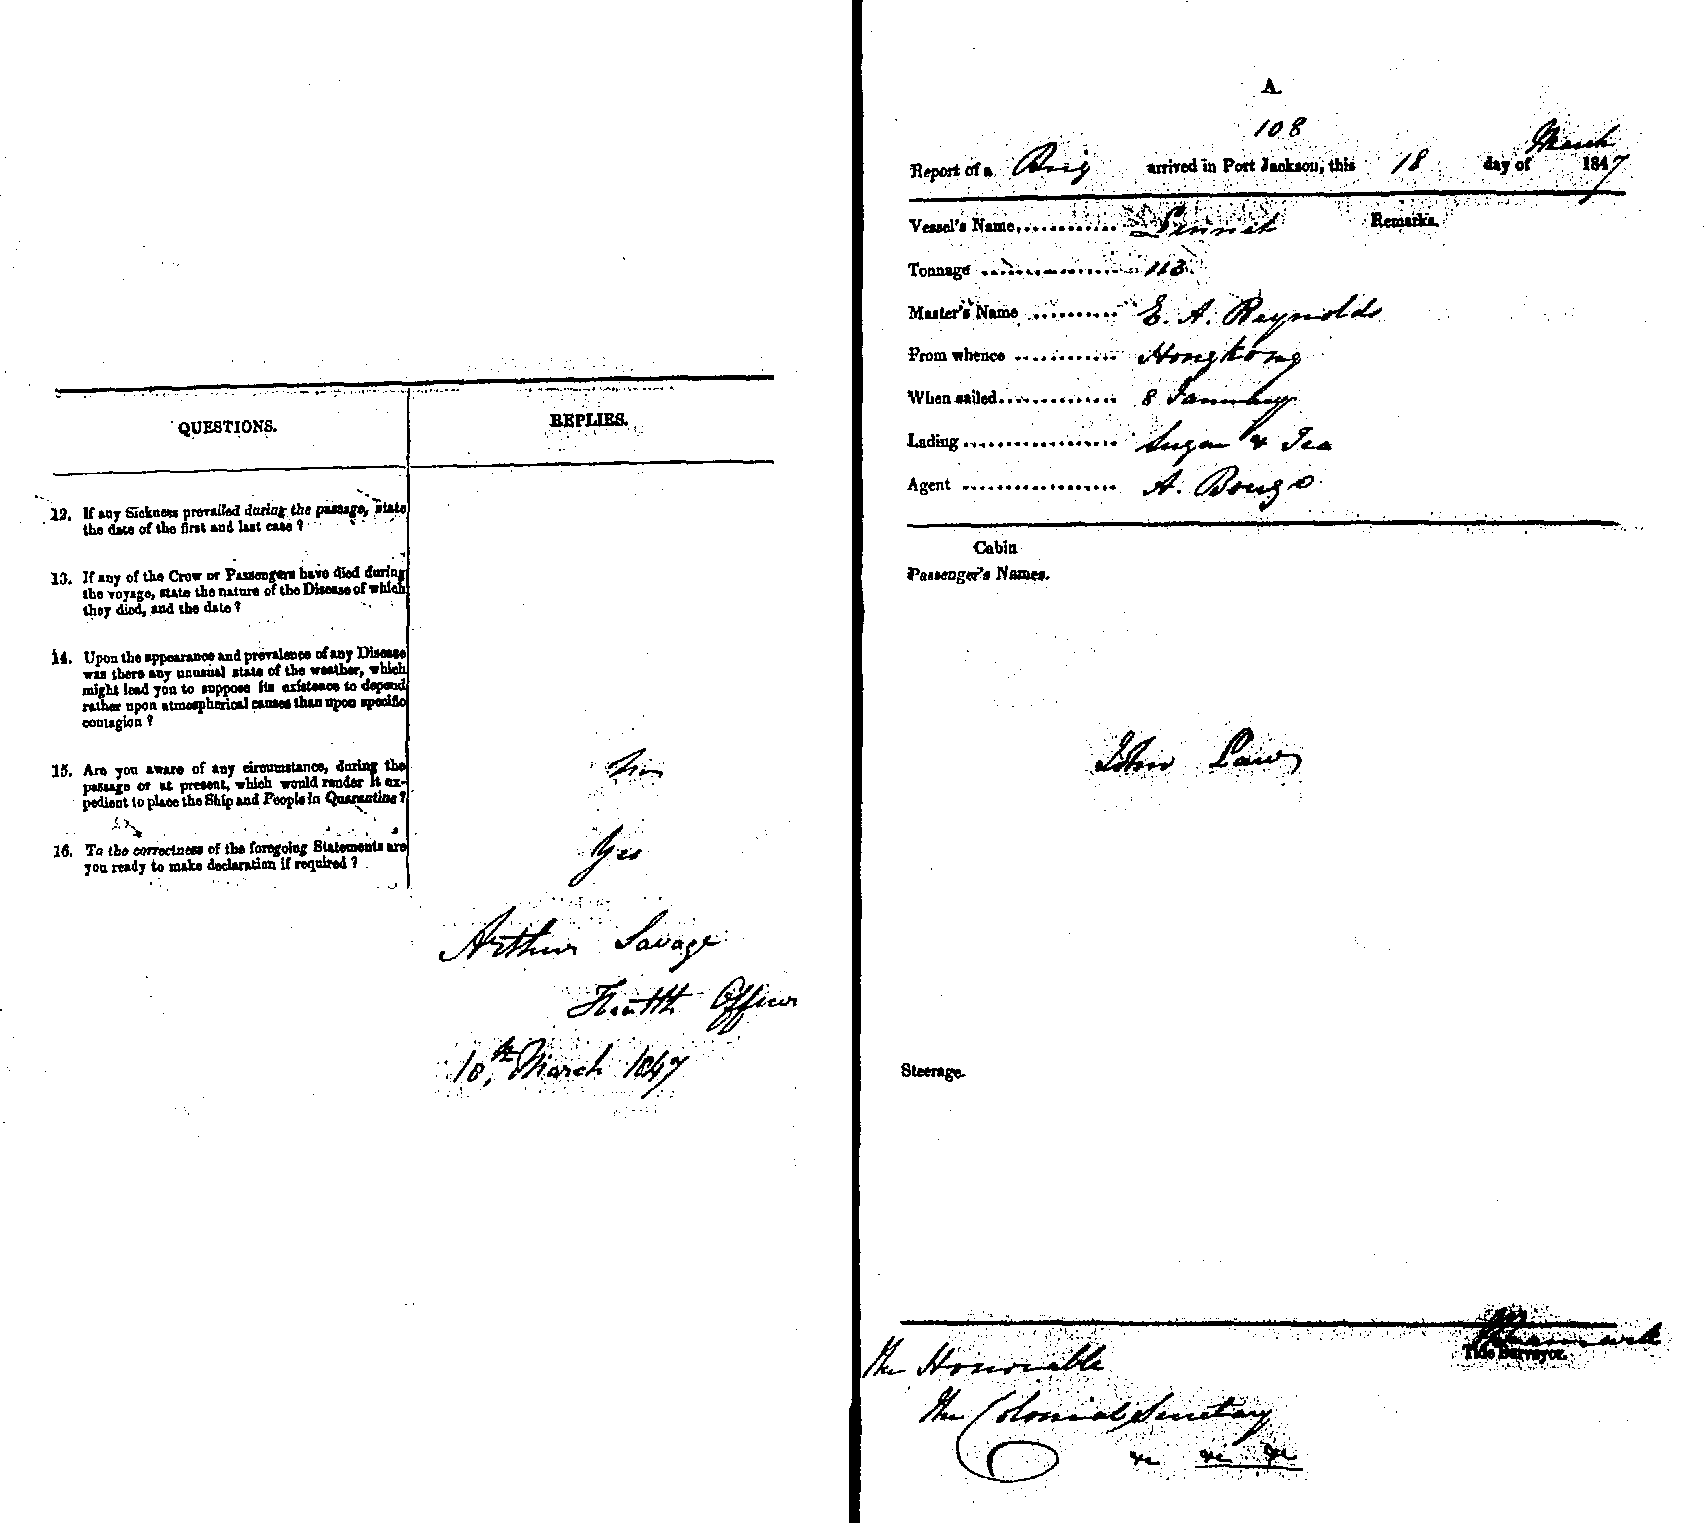 QUESTIONS.
REPLIES.
12. If any Sickness prevailed during the passage, state
the date of the first and last case ?
13. If any of the Crew or Passengers have died during
the voyage, state the nature of the Disease of which
they died, and the date ?
14. Upon the appearance and prevalence of any Disease
was there any unusual state of the weather, which
might lead you to suppose its existence to depend
rather upon atmospherical causes than upon specific
contagion ?
15. Are you aware of any circumstance, during the
passage or at present, which would render it ex-
pedient to place the Ship and People in Quarantine ?
No
16. To the correctness of the foregoing Statements are
you ready to make declaration if required ?
Yes
Arthur Savage
Health Officer
18th March 1847
A.
108
Report of a Brig arrived in Port Jackson, this 18 day of March 1847
Vessel's Name, Linnet Remarks.
Tonnage 113
Master's Name E. A. Reynolds
From whence Hongkong
When sailed 8 January
Lading Sugar & Tea
Agent A.
Cabin
Passenger's Names.
John
Steerage.
Tide Surveyor.
The Honorable
The Colonial Secretary
&c &c &c